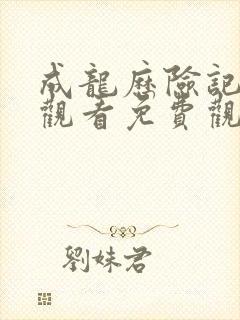 成龍歷險記
觀看免費觀
劉妹君